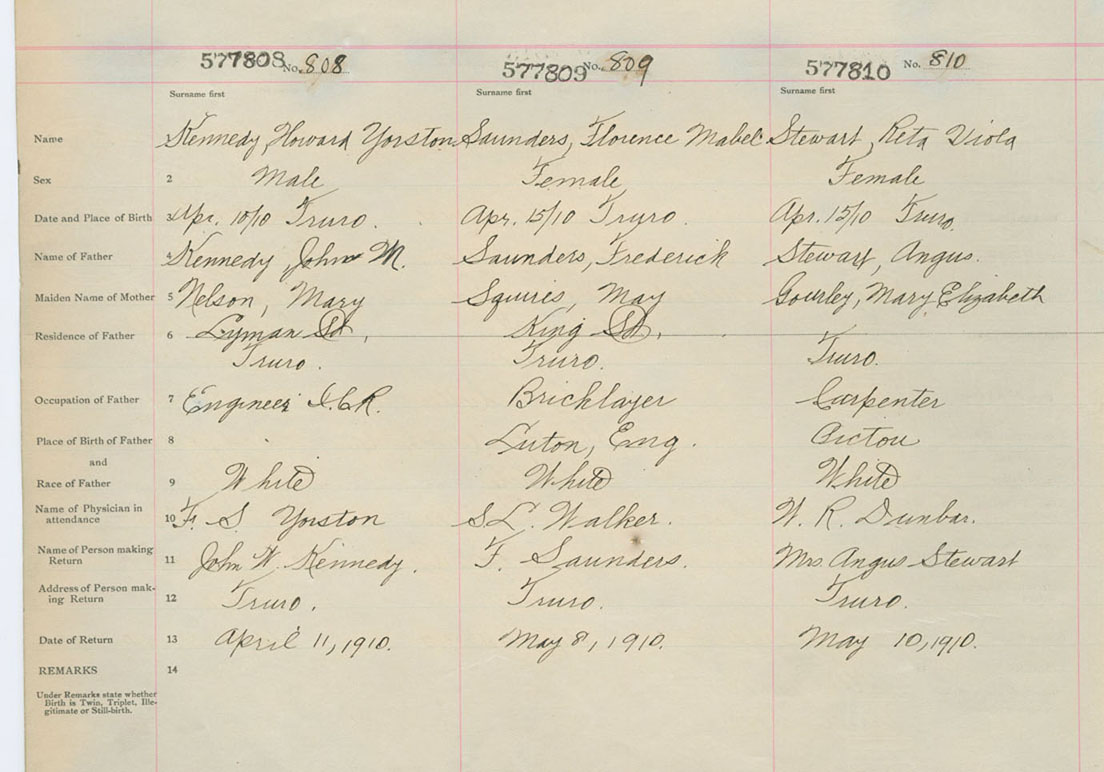 577808 No. 808 577809 No. 809 577810 No. 810
Surname first Surname first Surname first
Name Kennedy, Howard Yorston Saunders, Florence Mabel Stewart, Reta Viola
Sex 2 Male Female Female
Date and Place of Birth 3 Apr. 10/10 Truro. Apr. 15/10 Truro. Apr. 15/10 Truro.
Name of Father 4 Kennedy, John M. Saunders, Frederick Stewart, Angus.
Maiden Name of Mother 5 Nelson, Mary Squires, May Gourley, Mary Elizabeth
Residence of Father 6 Lyman St, King St,
Truro. Truro. Truro.
Occupation of Father 7 Engineer I.C.R. Bricklayer Carpenter
Place of Birth of Father 8 Luton, Eng. Pictou
and
Race of Father 9 White White White
Name of Physician in
attendance 10 F. S. Yorston S.L. Walker. W. R. Dunbar.
Name of Person making
Return 11 John W. Kennedy. F. Saunders. Mrs. Angus Stewart
Address of Person mak-
ing Return 12 Truro. Truro. Truro.
Date of Return 13 April 11, 1910. May 8, 1910. May 10, 1910.
REMARKS 14
Under Remarks state whether
Birth is Twin, Triplet, Ille-
gitimate or Still-birth.